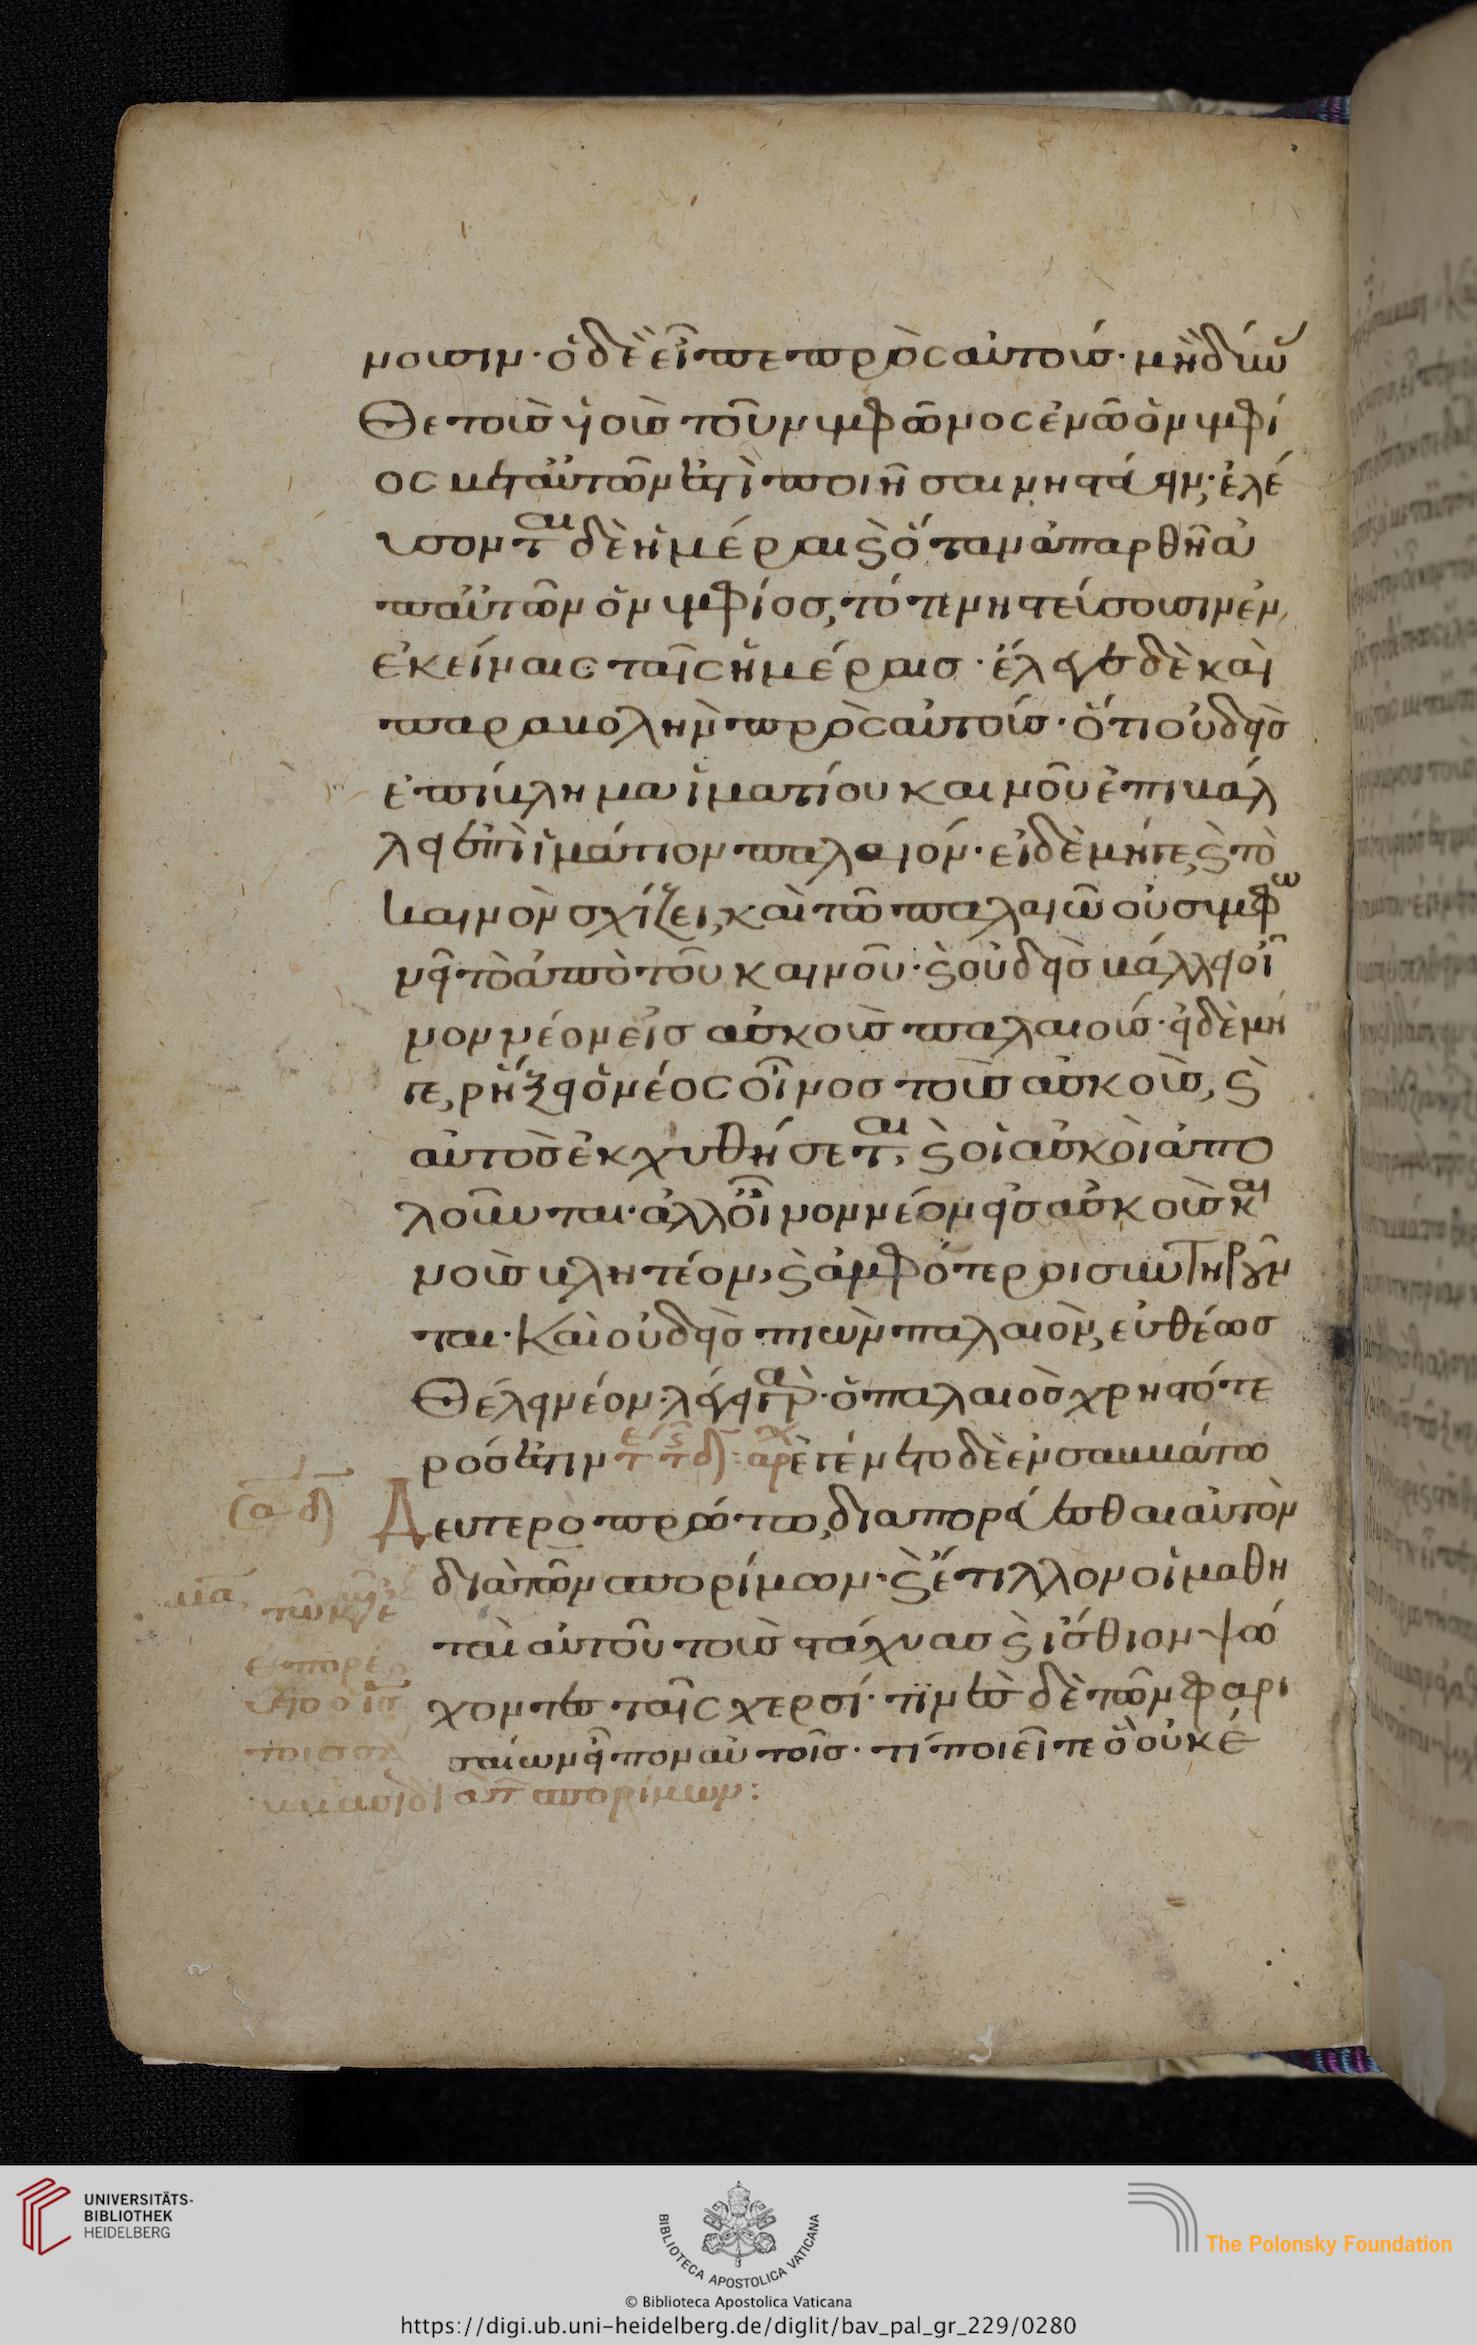 νουσιν· ὁ δὲ εἶπε πρὸς αὐτούς· μὴ δύνα
σθε τοὺς υἱοὺς τοῦ νυμφῶνος ἐν ᾧ ὁ νυμφί
ος μετ' αὐτῶν ἐστὶ ποιῆσαι νηστεύειν; ἐλεύ
σονται δὲ ἡμέραι ϗ ὅταν ἀπαρθῆ ἀ
π' αὐτῶν ὁ νυμφίος, τότε νηστεύσουσιν ἐν
ἐκείναις ταῖς ἡμέραις· ἔλεγε δὲ καὶ
παραβολὴν πρὸς αὐτούς· ὅτι οὐδεὶς
ἐπίβλημα ἱματίου καινοῦ ἐπιβάλ
λει ἐπὶ ἱμάτιον παλαιόν· εἰ δὲ μήγε, ϗ τὸ
καινὸν σχίζει, καὶ τῶ παλαιῶ οὐ συμφω
νεῖ τὸ ἀπὸ τοῦ καινοῦ· ϗ οὐδεὶς βάλλει οἶ
νον νέον εἰς ἀσκοὺς παλαιούς· εἰ δὲ μή
γε, ῥήξει ὁ νέος οἶνος τοὺς ἀσκούς, ϗ
αὐτὸς ἐκχυθήσεται, ϗ οἱ ἀσκοὶ ἀπο
λοῦνται· ἀλλ' οἶνον νέον εἰς ἀσκοὺς και
νοὺς βλητέον, ϗ ἀμφότεροι συντηροῦν
ται· Καὶ οὐδεὶς πιὼν παλαιὸν, εὐθέως
θέλει νέον· λέγει γὰρ· ὁ παλαιὸς χρηστότε
ρός ἐστιν ἐγένετο δὲ ἐν σαββάτω
Δευτεροπρώτω, διαπορεύεσθαι αὐτὸν
διὰ τῶν σπορίμων· ϗ ἔτιλλον οἱ μαθη
ταὶ αὐτοῦ τοὺς στάχυας ϗ ἤσθιον ψώ
χοντες ταῖς χερσί· τινὲς δὲ τῶν φαρι
σαίων εἶπον αὐτοῖς· τί ποιεῖτε ὃ οὐκ ἔ
σπορίμων:
UNIVERSITÄTS-
BIBLIOTHEK
HEIDELBERG
BIBLIOTECA APOSTOLICA VATICANA
The Polonsky Foundation
© Biblioteca Apostolica Vaticana
https://digi.ub.uni-heidelberg.de/diglit/bav_pal_gr_229/0280